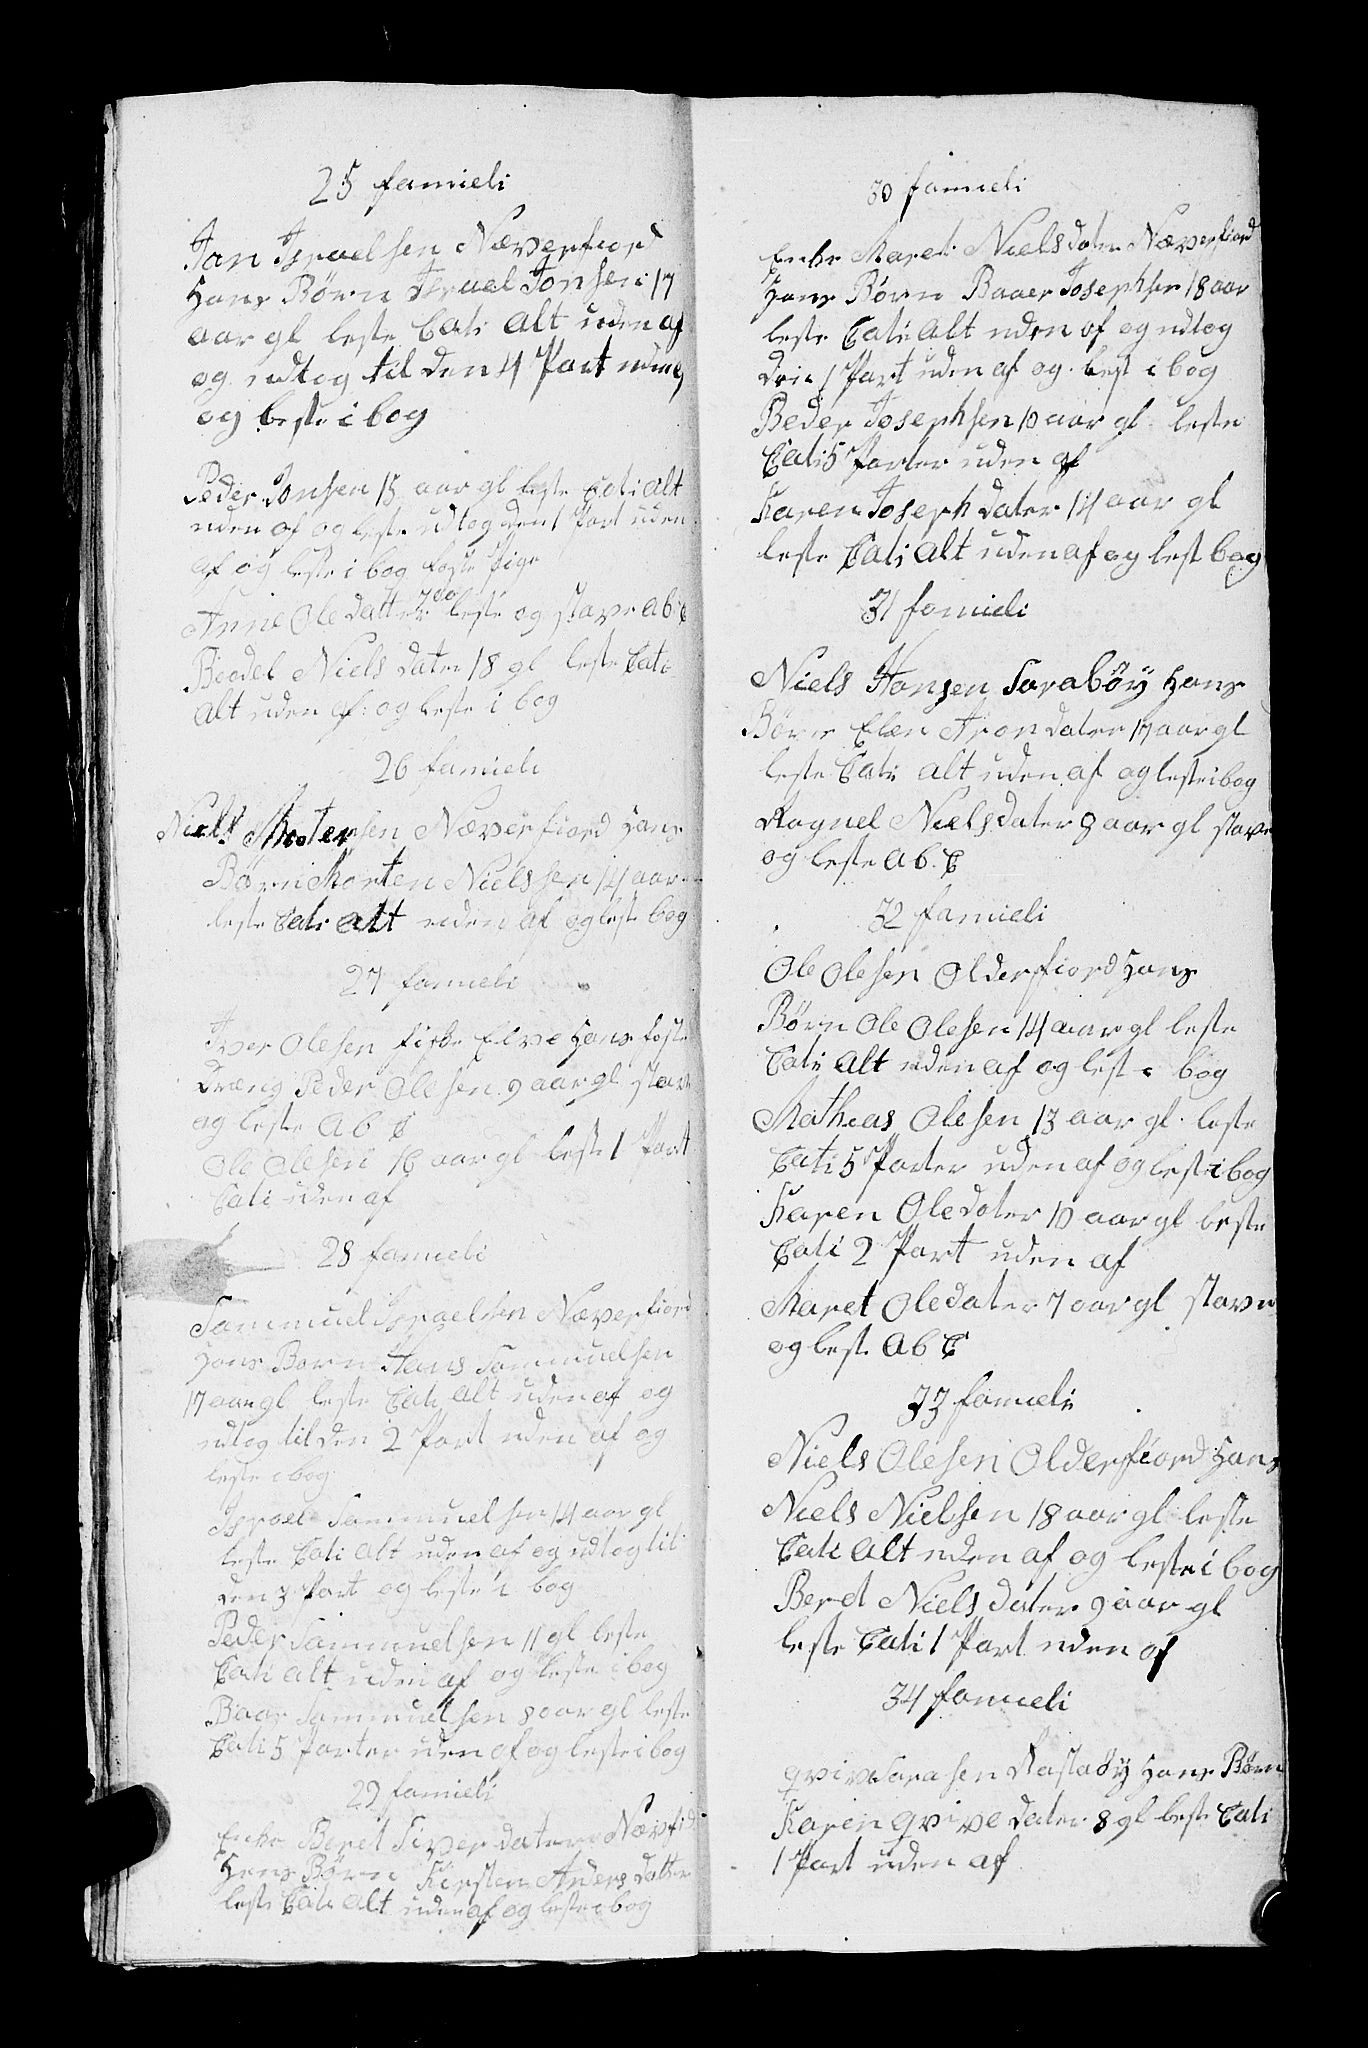 25 famieli
Jon Israelsen Næverfiord
Hans Børn Israel Jonsen 17
aar gl leste Cati alt uden af
og udtog til den 4 Part uden
og leste i bog
Peder Jonsen 15 aar gl leste Cati alt
uden af og leste udtog den 1 Part uden
af og leste i bog foste Pige
Anne Ole datter 7 leste og stave ab C
Biædel Niels dater 18 gl leste Cati
alt uden af og leste i bog
26 famieli
Niels Mortensen Næverfiord Hans
Børn Morten Nielssen 14 aar
leste Cati alt uden af og leste bog
27 famieli
Iver Olesen fiske Elve Hans foste
dræng Peder Olesen 9 aar gl stave
og leste ab C
Ole Olesen 16 aar gl leste 1 Part
Cati uden af
28 famieli
Sammuel Israelsen Næverfiord
Hans Børn Hans Sammuelsen
17 aar gl leste Cati alt uden af og
udtog til den 2 Part uden af og
leste i bog
Israel Sammuelsen 14 aar gl
leste Cati alt uden af og udtog til
den 3 Part og leste i bog
Peder Sammuelsen 11 gl leste
Cati alt uden af og leste i bog
Baar Sammuelsen 8 aar gl leste
Cati 5 Parter uden af og leste i bog
29 famieli
Enke Berit Siver dater Nævfid
Hens Børn Kirsten Anders datter
leste Cati alt uden af og leste i bog
30 famieli
Enke Maret Nielsdater Næverfiord
Hans Børn Baaer Josephsen 18 aar
leste Cati alt uden af og udtog
den 1 Part uden af og lest i bog
Beder Josephsen 10 aar gl leste
Cati 5 Parter uden af
Karen Joseph dater 14 aar gl
leste Cati alt uden af og lest bog
31 famieli
Niels Hansen Sarabøy Hans
Børn Elen Aron dater 17 aar gl
leste Cati alt uden af og leste i bog
Ragnel Nielsdater 9 aar gl stave
og leste ab C
32 famieli
Ole Olesen Olderfiord Hans
Børn Ole Olesen 14 aar gl leste
Cati alt uden af og lest i bog
Mathias Olesen 13 aar gl leste
Cati 5 Parter uden af og leste i bog
Karen Oledater 10 aar gl leste
Cati 2 Part uden af
Maret Oledater 7 aar gl stave
og leste ab C
33 famieli
Niels Olesen Olderfiord Hans
Niels Nielsen 18 aar gl leste
Cati alt uden af og leste i bog
Beret Niels dater 9 aar gl
leste Cati 1 Part uden af
34 famieli
qvive Larasen Rastaby Hans Børn
Karen qvive dater 8 gl leste Cati
1 Part uden af